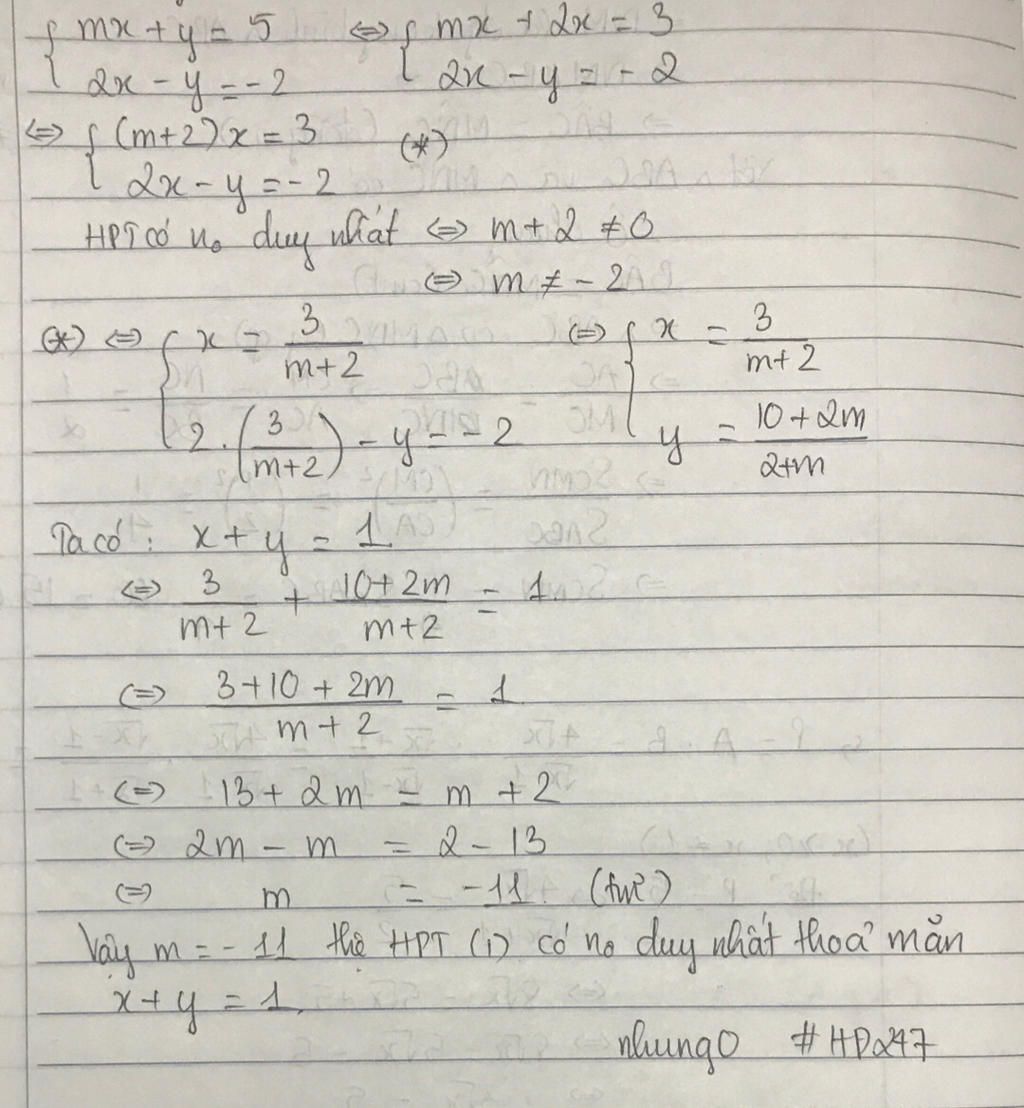 { mx + y = 5 ⇔ { mx + 2x = 3
2x - y = -2 2x - y = -2
⇔ { (m+2)x = 3 (*)
2x - y = -2
HPT có no duy nhất ⇔ m + 2 ≠ 0
⇔ m ≠ -2
(*) ⇔ { x = 3/(m+2) ⇔ { x = 3/(m+2)
2.(3/(m+2)) - y = -2 y = (10+2m)/(2+m)
Ta có: x + y = 1
⇔ 3/(m+2) + (10+2m)/(m+2) = 1
⇔ (3+10+2m)/(m+2) = 1
⇔ 13 + 2m = m + 2
⇔ 2m - m = 2 - 13
⇔ m = -11
Vậy m = -11 thì HPT (1) có no duy nhất thoả mãn
x + y = 1.
nhung0 #HD247